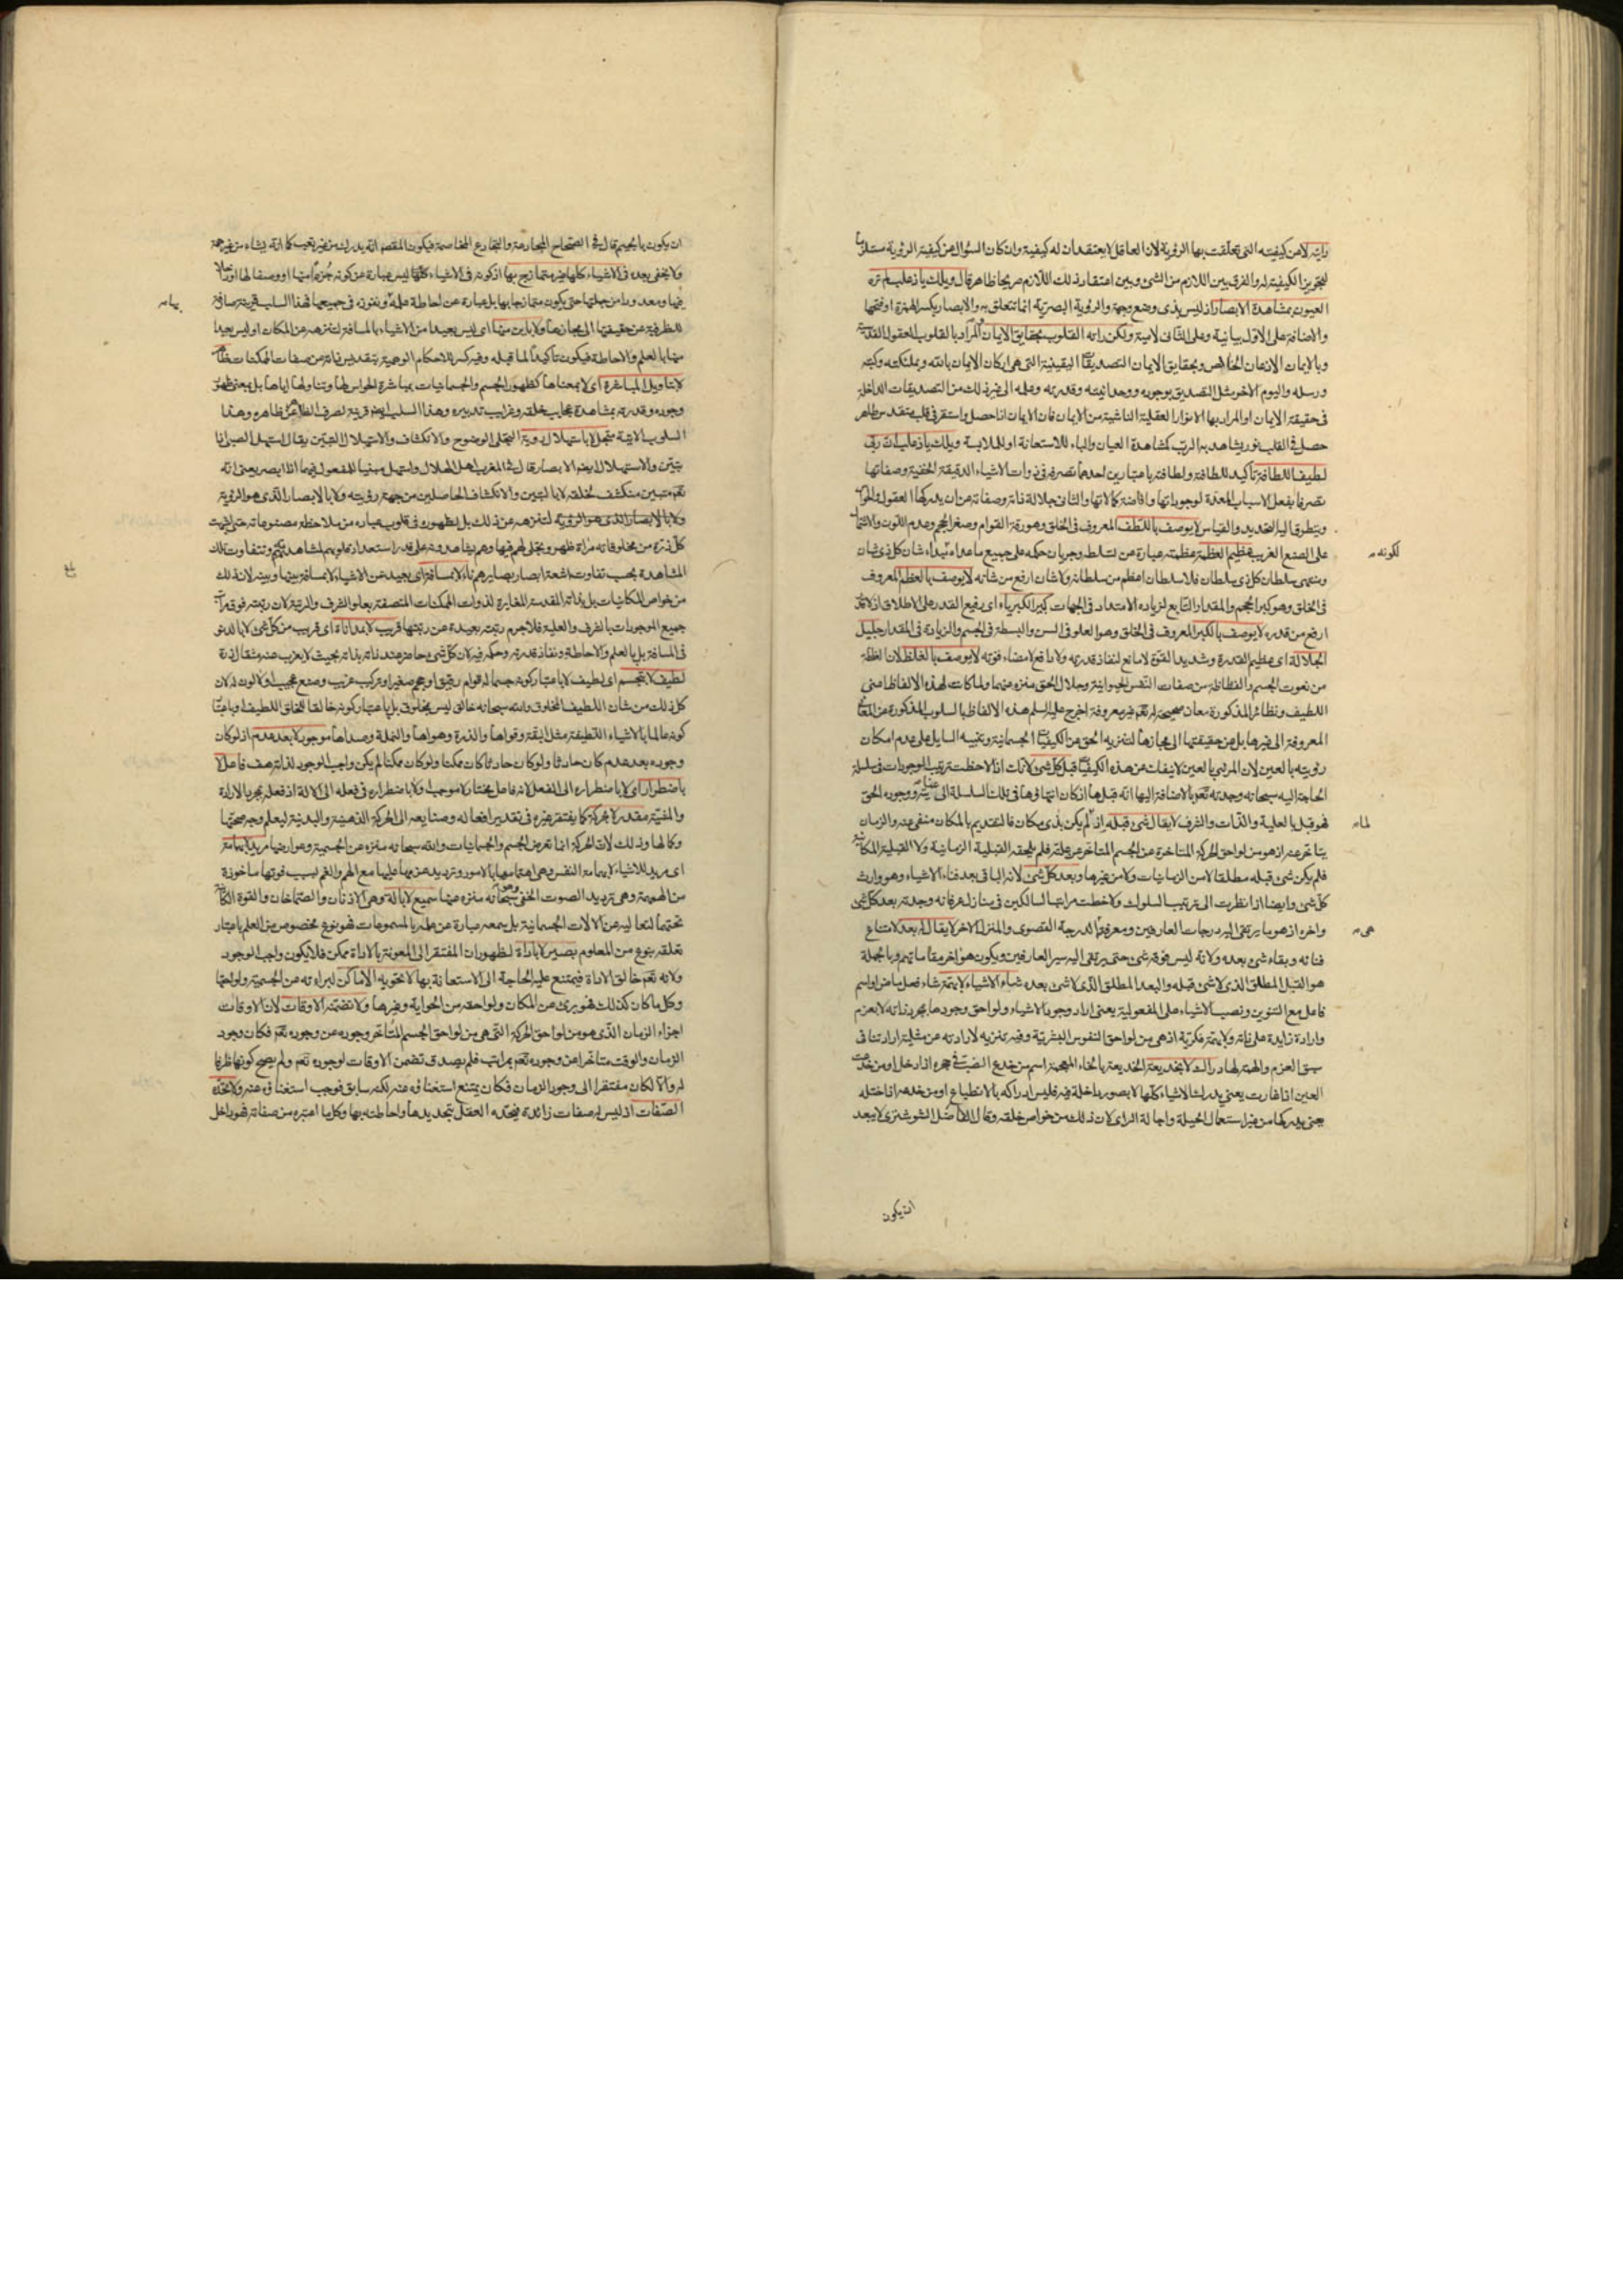 رايته لا عن كيفيته التى تعلقت بها الرؤية لان العاقل لا يعتقد ان له كيفية وان كان السؤال عن كيفية الرؤية مستلزما
لتجويز الكيفية له والفرق بين اللازم من الشئ وبين اعتقاد ذلك اللازم صريحا ظاهر قال ويلك يا ذعلب لم تره
العيون بمشاهدة الابصار اذ ليس بذى وضع وجهة والرؤية البصرية انما تتعلق به والابصار بكسر الهمزة او فتحها
والاضافة على الاول بيانية وعلى الثانى لامية ولكن راته القلوب بحقايق الايمان المراد بالقلوب العقول القدسية
وبالايمان الاذعان الخالص وبحقايق الايمان التصديقات اليقينية التى هى اركان الايمان بالله وبملئكته وكتبه
ورسله واليوم الاخر مثل التصديق بوجوده ووحدانيته وقدرته وعلمه الى غير ذلك من التصديقات الداخلة
فى حقيقة الايمان او المراد بها الانوار العقلية الناشية من الايمان فان الايمان اذا حصل واستقر فى قلب
حصل فى القلب نور يشاهد به الرب كمشاهدة العيان والباء للاستعانة او الملابسة ويلك يا ذعلب ان ربى
لطيف اللطافة تاكيد للطافة ولطافته باعتبارين احدهما تصرفه فى ذوات الاشياء الدقيقة الخفية وصفاتها
تصرفا بفعل الاسباب المعدة لوجوداتها وافاضة كمالاتها والثانى جلالة ذاته وصفاته عن ان يدركها العقول والحواس
ويتطرق اليه التحديد والقياس لا يوصف باللطف المعروف فى الخلق وهو رقة القوام وصغر الحجم وعدم اللون
على الصنع الغريب عظيم العظمة عظمته عبارة عن تسلط وجريان حكمه على جميع ما عداه شان كل ذى شان
وينتهى سلطان كل ذى سلطان فلا سلطان اعظم من سلطانه ولا شان ارفع من شانه لا يوصف بالعظم المعروف
لكونه
فى الخلق وهو كبر الحجم والمقدار التابع لزيادة الامتداد فى الجهات كبير الكبرياء اى رفيع القدر على الاطلاق اذ لا قدر
ارفع من قدره لا يوصف بالكبر المعروف فى الخلق وهو العلو فى السن والبسطة فى الجسم والزيادة فى المقدار جليل
الجلالة اى عظيم القدرة وشديد القوة لا مانع لنفاذ قدرته ولا دافع لامضاء قوته لا يوصف بالغلظ لان الغلظة
من نعوت الجسم والفظاظة من صفات النفس الحيوانية وجلال الحق منزه عنهما ولما كانت لهذه الالفاظ اعنى
اللطيف ونظائر المذكورة معان صحيحة له تعم غير معروفة اخرج عليه السلم هذه الالفاظ بالسلوب المذكورة عن المعانى
المعروفة الى غيرها بل عن حقيقتها الى مجازها لتنزيه الحق عن الكيفيات الجسمانية وتنبيه السايل على عدم امكان
رؤيته بالعين لان المرئى بالعين لا ينفك عن هذه الكيفيات قبل كل شئ لانك اذا لاحظت ترتيب الموجودات فى سلسلة
الحاجة اليه سبحانه وجدته تعم بالاضافة اليها انه قبلها اذ كان انتهاؤها فى تلك السلسلة الى وجوده الحق
فهو قبل بالعلية والذات والشرف لا يقال شئ قبله اذ لم يكن بذى مكان فالتقديم بالمكان منفى عنه والزمان
لماه
يتاخر عنه اذ هو من لواحق الحركة المتاخرة عن الجسم المتاخر عن علته فلم يلحقه القبلية الزمانية ولا القبلية المكانية
فلم يكن شئ قبله مطلقا لا من الزمانيات ولا من غيرها وبعد كل شئ لانه الباقى بعد فناء الاشياء وهو وارث
كل شئ وايضا اذا نظرت الى ترتيب السلوك ولاحظت مراتب السالكين فى منازل عرفانه وجدته بعد كل شئ
واخره اذ هو ما يرتقى اليه درجات العارفين ومعرفته الدرجة القصوى والمنزل الاخر لا يقال له بعد لامتناع
هى
فنائه وبقاء شئ بعده ولانه ليس فوقه شئ حتى يرتقى اليه سير العارفين ويكون هو اخر مقاماتهم وبالجملة
هو القبل المطلق الذى لا شئ قبله والبعد المطلق الذى لا شئ بعده شاء الاشياء لا بهمة شاء فعل ماض او اسم
فاعل مع التنوين ونصب الاشياء على المفعولية يعنى اراد وجود الاشياء ولواحق وجودها بمجرد ذاته لا بعزم
وارادة زايدة على ذاته ولا بهمة فكرية اذ هى من لواحق النفوس البشرية وفيه تنزيه لارادته عن مثلية ارادتنا فى
سبق العزم والهمة لها دراك لا بخديعة الخديعة بالخاء المعجمة اسم من خدع الضب فى جحره اذا دخل او من خدعت
العين اذا غارت يعنى يدرك الاشياء كلها لا بصور داخلة فيه فليس ادراكه بالانطباع او من خدعه اذا ختله
يعنى يدركها من غير استعمال الحيلة واجالة الراى لان ذلك من خواص خلقه وقال الفاضل الشوشترى لا يبعد
ان يكون
ان يكون بالجيم قال فى الصحاح المجادعة والتجادع المخاصمة فيكون المقصود انه يدرك من غير تعب كما انه يشاء من غير همة
ولا يخفى بعده فى الاشياء كلها غير متمازج بها اذ كونه فى الاشياء كلها ليس عبارة عن كونه جزءا منها او وصفا لها او داخلا
فيها ومعدودا من جملتها حتى يكون متمازجا بها بل عبارة عن احاطة علمه ونفوذه فى جميعها فهذا السلب قرينة صارفة
بيانه
للظرفية عن حقيقتها الى مجازها ولا باين منها اى ليس بعيدا من الاشياء بالمسافة لتنزهه عن المكان او ليس بعيدا
منها بالعلم والاحاطة فيكون تاكيدا لما قبله وفيه كسر للاحكام الوهمية بتقديس ذاته عن صفات الممكنات ظاهر
لا بتاويل المباشرة اى لا بمعناها كظهور الجسم والجسمانيات بمباشرة الحواس لها وتناولها اياها بل بمعنى ظهور
وجوده وقدرته بمشاهدة عجايب خلقه وغرايب تدبيره وهذا السلب ايضا قرينة لصرف الظاهر عن ظاهره وهذا
السلوب الاتية متجل لا باستهلال رؤية التجلى الوضوح والانكشاف والاستهلال التبين يقال استهل الصبى اذا
يتبين والاستهلال ايضا الابصار قال فى المغرب اهل الهلال واستهل مبنيا للمفعول فيهما اذا ابصر يعنى انه
تعم متبين منكشف لخلقه لا بالتبين والانكشاف الحاصلين من جهة رؤيته ولا بالابصار الذى هو الرؤية
ولا بالابصار الذى هو الرؤية لتنزهه عن ذلك بل بظهوره فى قلوب عباده من ملاحظة مصنوعاته حتى اشبهت
كل ذرة من مخلوقاته مراة ظهر وتجلى لهم فيها وهم يشاهدونه على قدر استعداد قلوبهم لمشاهدته وتتفاوت تلك
المشاهدة بحسب تفاوت اشعة ابصار بصايرهم ناء لا بمسافة اى بعيد عن الاشياء لا بمسافة بينها وبينه لان ذلك
من خواص المكانيات بل بذاته المقدسة المغايرة لذوات الممكنات المتصفة بعلو الشرف والرتبة لان رتبته فوق مراتب
جميع الموجودات بالشرف والعلية فلا جرم رتبته بعيدة عن رتبتها قريب لا بمداناة اى قريب من كل شئ لا بالدنو
فى المسافة بل بالعلم والاحاطة ونفاذ قدرته وحكمه فيه لان كل شئ حاضر عند ذاته بذاته بحيث لا يعزب عنه مثقال ذرة
لطيف لا بتجسم اى لطيف لا باعتبار كونه جسما له قوام رقيق او حجم صغير او تركيب غريب وصنع عجيب او لا لون له لان
كل ذلك من شان اللطيف المخلوق والله سبحانه خالق ليس بمخلوق بل باعتبار كونه خالقا للخلق اللطيف او باعتبار
كونه عالما بالاشياء اللطيفة مثل البقة وقواها والذرة وهواها والنملة وصداها موجود لا بعد عدم اذ لو كان
وجوده بعد عدم كان حادثا ولو كان حادثا كان ممكنا ولو كان ممكنا لم يكن واجب الوجود لذاته هف فاعل لا
باضطرار اى لا باضطراره الى الفعل لانه فاعل مختار لا موجب او لا باضطراره فى فعله الى الالة اذ فعله بمجرد الارادة
والمشية مقدر لا بحركة كما يفتقر غيره فى تقدير افعاله وصنايعه الى الحركة الذهنية والبدنية ليعلم وجه صحتها
وكمالها وذلك لان الحركة انما تعرض الجسم والجسمانيات والله سبحانه منزه عن الجسمية وعوارضها مريد لا بهمامة
اى مريد للاشياء لا بهمامة النفس وهى اهتمامها بالامور وترديد عزمها عليها مع الهم والغم بسبب فوتها ماخوذة
من الهمهمة وهى ترديد الصوت الخفى وهو سبحانه منزه عنها سميع لا بالة وهى الاذنان والصماخان والقوة الكائنة
تحتهما لتعاليه عن الالات الجسمانية بل سمعه عبارة عن علمه بالمسموعات فهو نوع مخصوص من العلم باعتبار
تعلقه بنوع من المعلوم بصير لا باداة لظهور ان المفتقر الى المعونة بالاداة ممكن فلا يكون واجب الوجود
ولانه تعم خالق الاداة فيمتنع عليه الحاجة الى الاستعانة بها لا تحويه الاماكن لبراءته عن الجسمية ولواحقها
وكل ما كان كذلك فهو برئ عن المكان ولواحقه من الحواية وغيرها ولا تضمنه الاوقات لان الاوقات
اجزاء الزمان الذى هو من لواحق الحركة التى هى من لواحق الجسم المتاخر وجوده عن وجوده تعم فكان وجود
الزمان والوقت متاخرا عن وجوده تعم بمراتب فلم يصدق تضمن الاوقات لوجوده تعم ولم يصح كونها ظرفا
له والا لكان مفتقرا الى وجود الزمان فكان يمتنع استغناؤه عنه لكنه سابق فوجب استغناؤه عنه ولا تحده
الصفات اذ ليس له صفات زائدة فيحده العقل بتحديدها واحاطته بها وكل ما اعتبره من صفاته فهو داخل